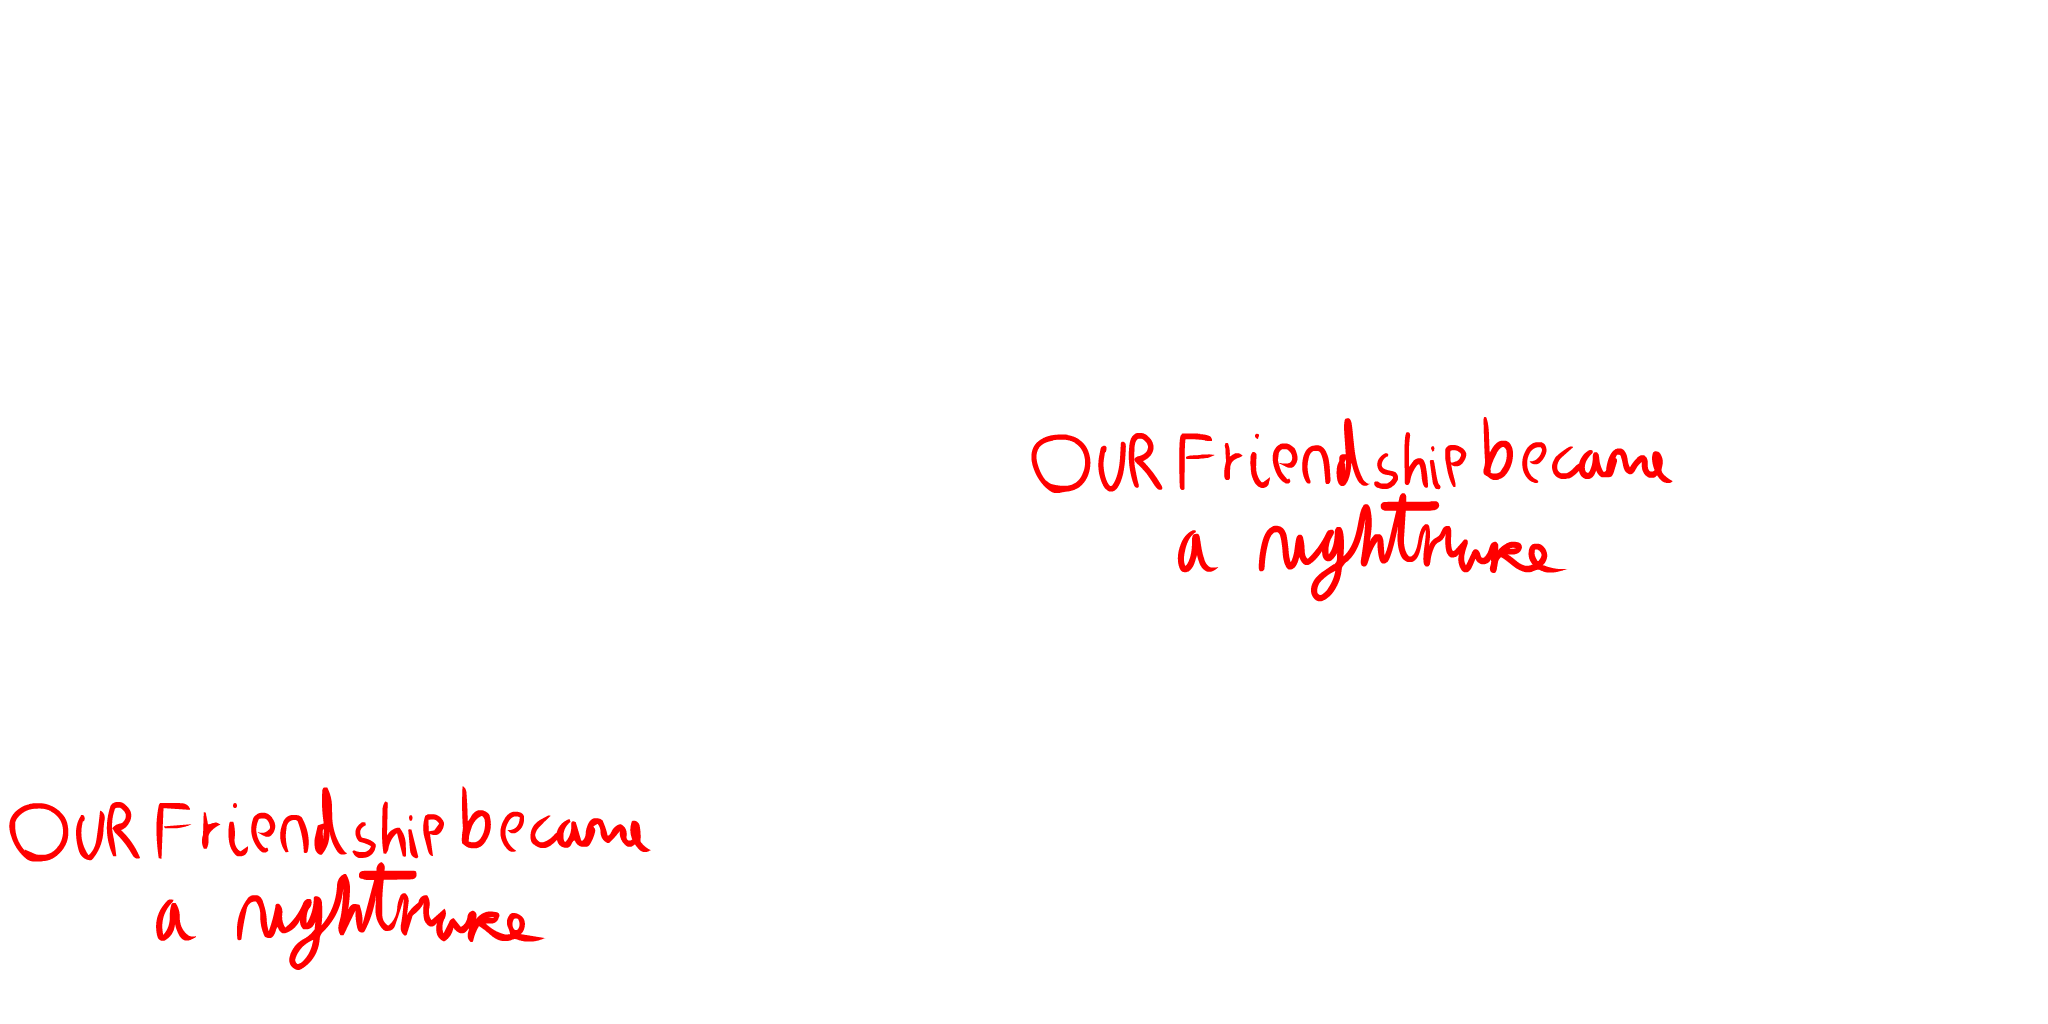 OUR Friendship became
a nightmare
OUR Friendship became
a nightmare